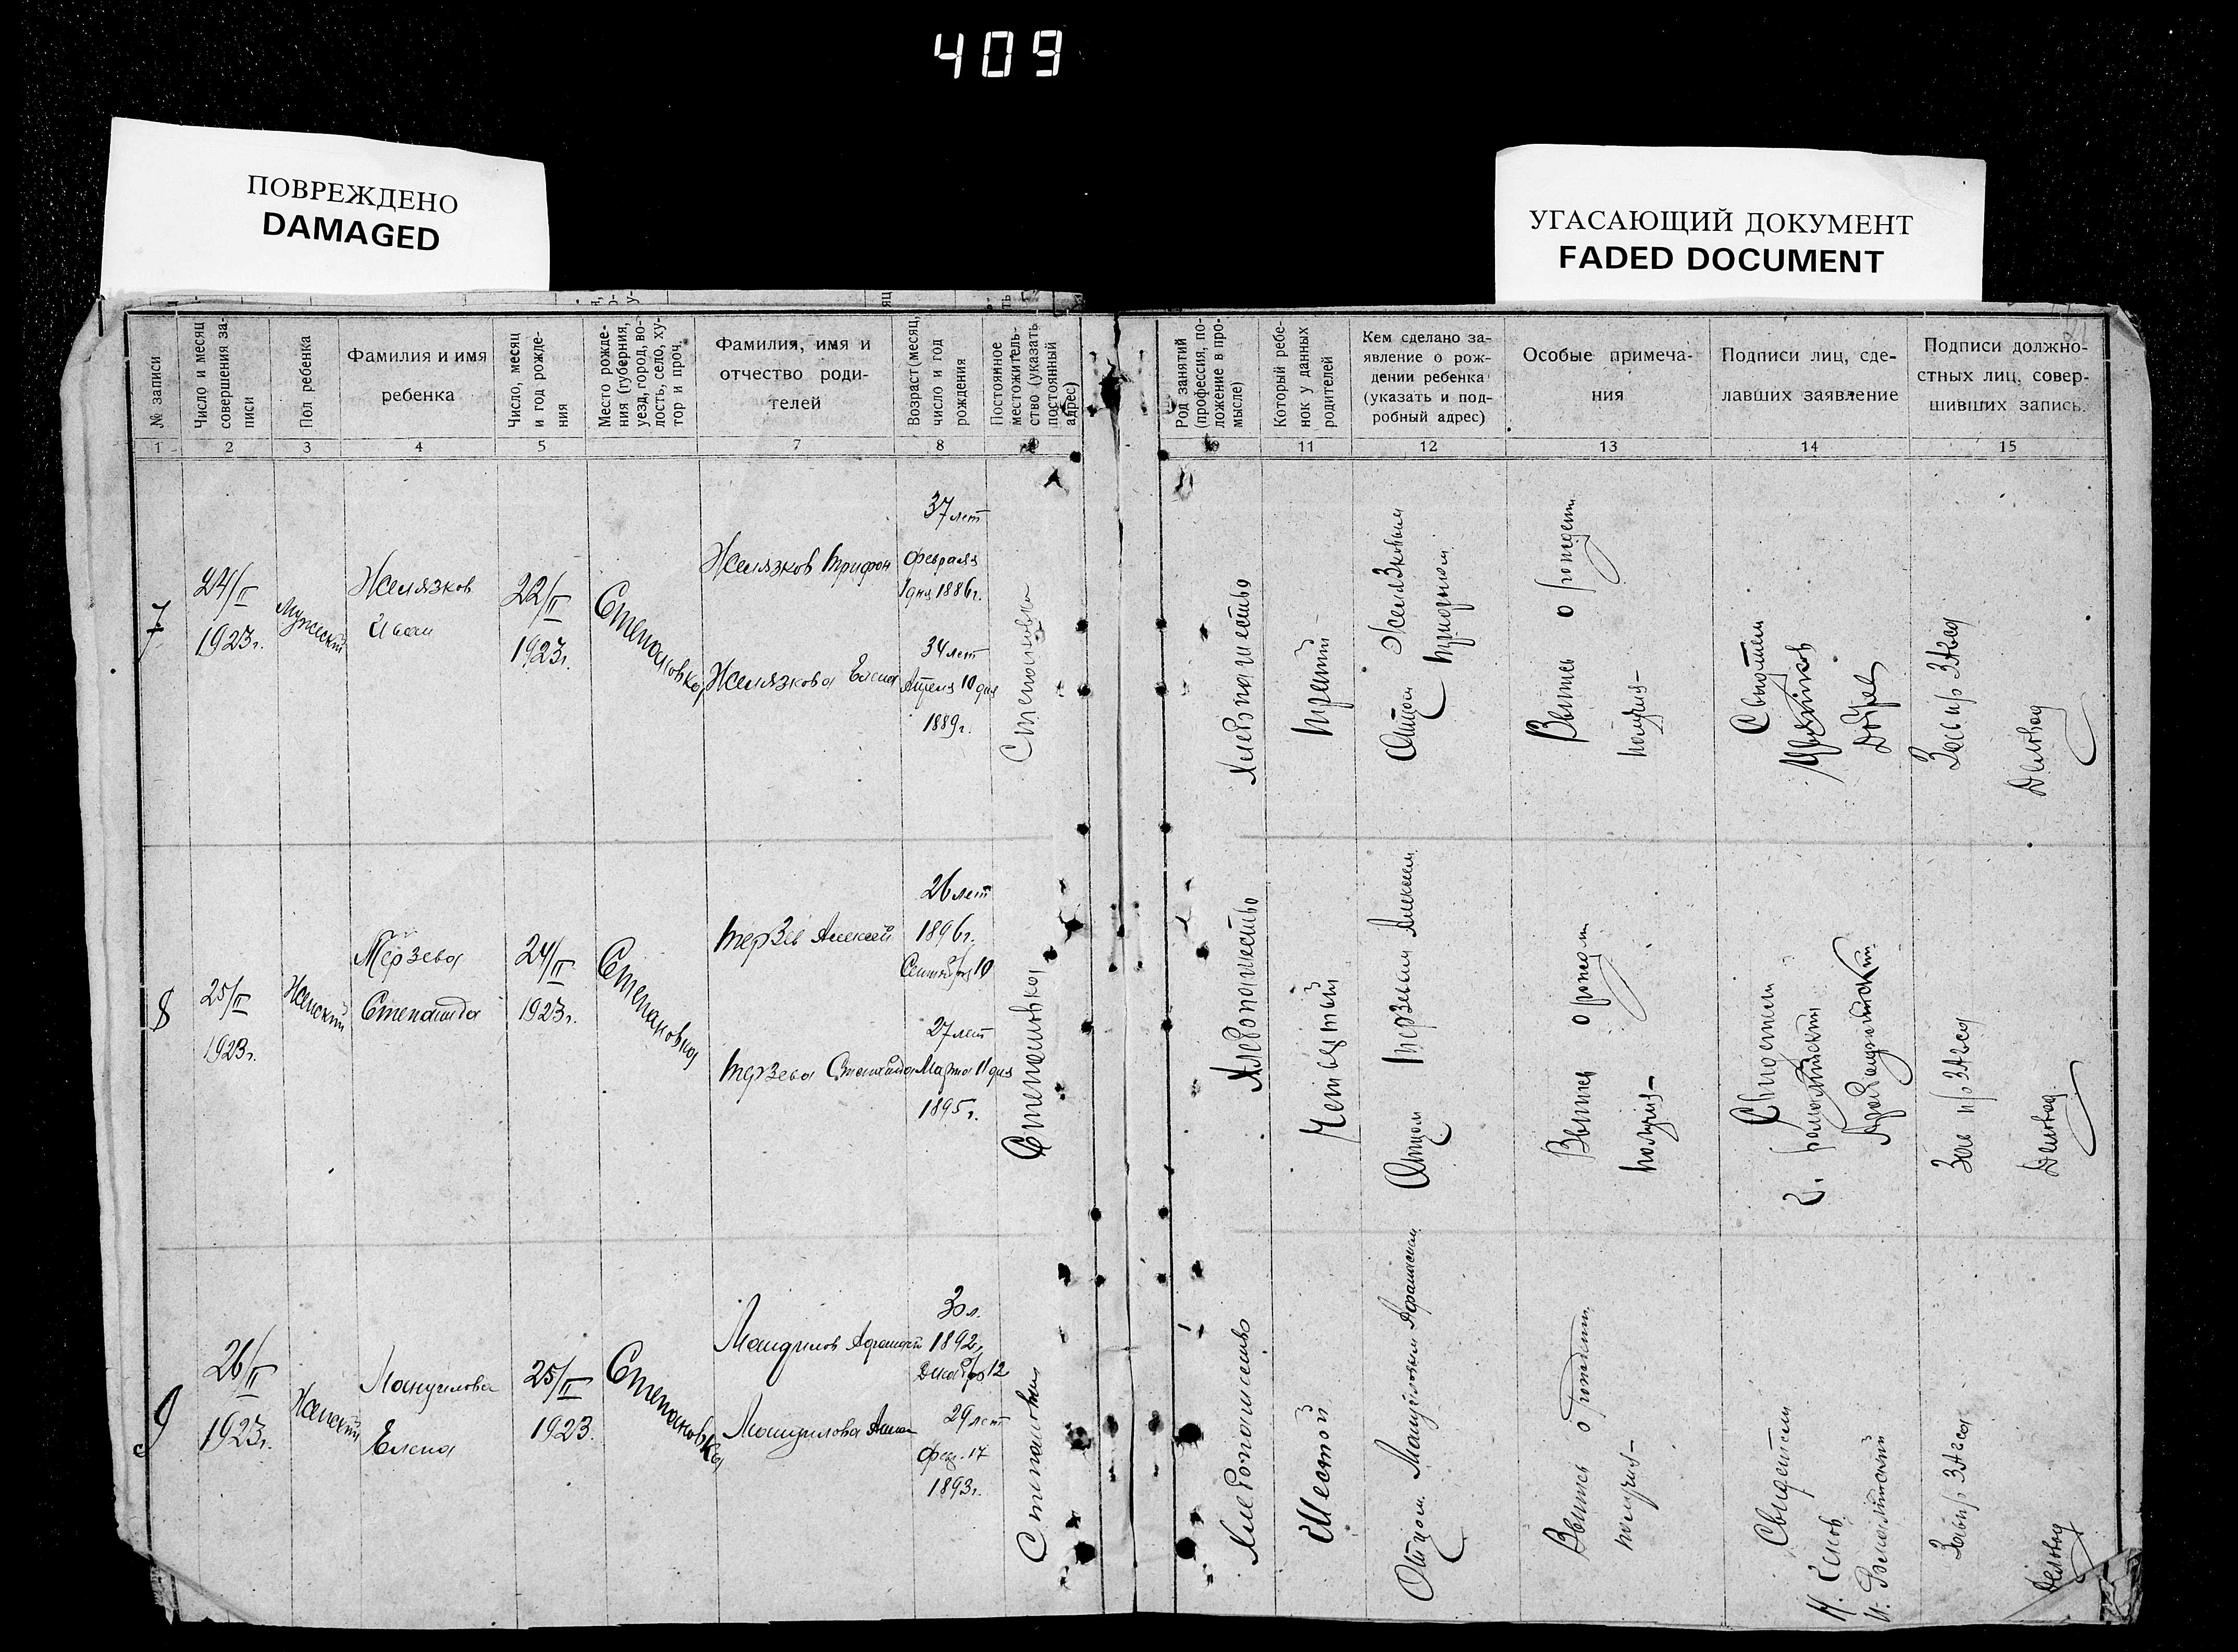 409
ПОВРЕЖДЕНО
DAMAGED
УГАСАЮЩИЙ ДОКУМЕНТ
FADED DOCUMENT
№ записи
Число и месяц
совершения за-
писи
Пол ребенка
Фамилия и имя
ребенка
Число, месяц
и год рожде-
ния
Место рожде-
ния (губерния,
уезд, город, во-
лость, село, ху-
тор и проч.
Фамилия, имя и
отчество роди-
телей
Возраст (месяц,
число и год
рождения
Постоянное
местожитель-
ство (указать
постоянный
адрес)
Род занятий
(профессия, по-
ложение в про-
мысле)
Который ребе-
нок у данных
родителей
Кем сделано за-
явление о рож-
дении ребенка
(указать и под-
робный адрес)
Особые примеча-
ния
Подписи лиц, сде-
лавших заявление
Подписи должно-
стных лиц, совер-
шивших запись.
1 2 3 4 5 7 8 11 12 13 14 15
7
24/II
1923г.
Мужский
Желязков
Иван
22/II
1923г.
Степановка
Желязков Трифон
Желязкова Елена
37 лет
февраля
1 дня 1886г.
34 лет
10 дня
1889г.
Степановка
Хлебопашество
Третий
Отцом Желязковым
Трифоном
Выпись о рожден
получил
8
25/II
1923г.
Женский
Терзева
Степанида
24/II
1923г.
Степановка
Терзев Алексей
Терзева Степанида
26 лет
1896г.
Сентября 10
27 лет
Марта 11 дня
1895г.
Степановка
Хлебопашество
Четвертый
Отцом Терзевым Алексеем
Выпись о рожден
получил
9
26/II
1923г.
Женский
Манулова
Елена
25/II
1923.
Степановка
30 л.
1892г.
Декабря 12
29 лет
февр. 17
1893г.
Степановка
Хлебопашество
Шестой
Отцом
Выпись о рождении
получил